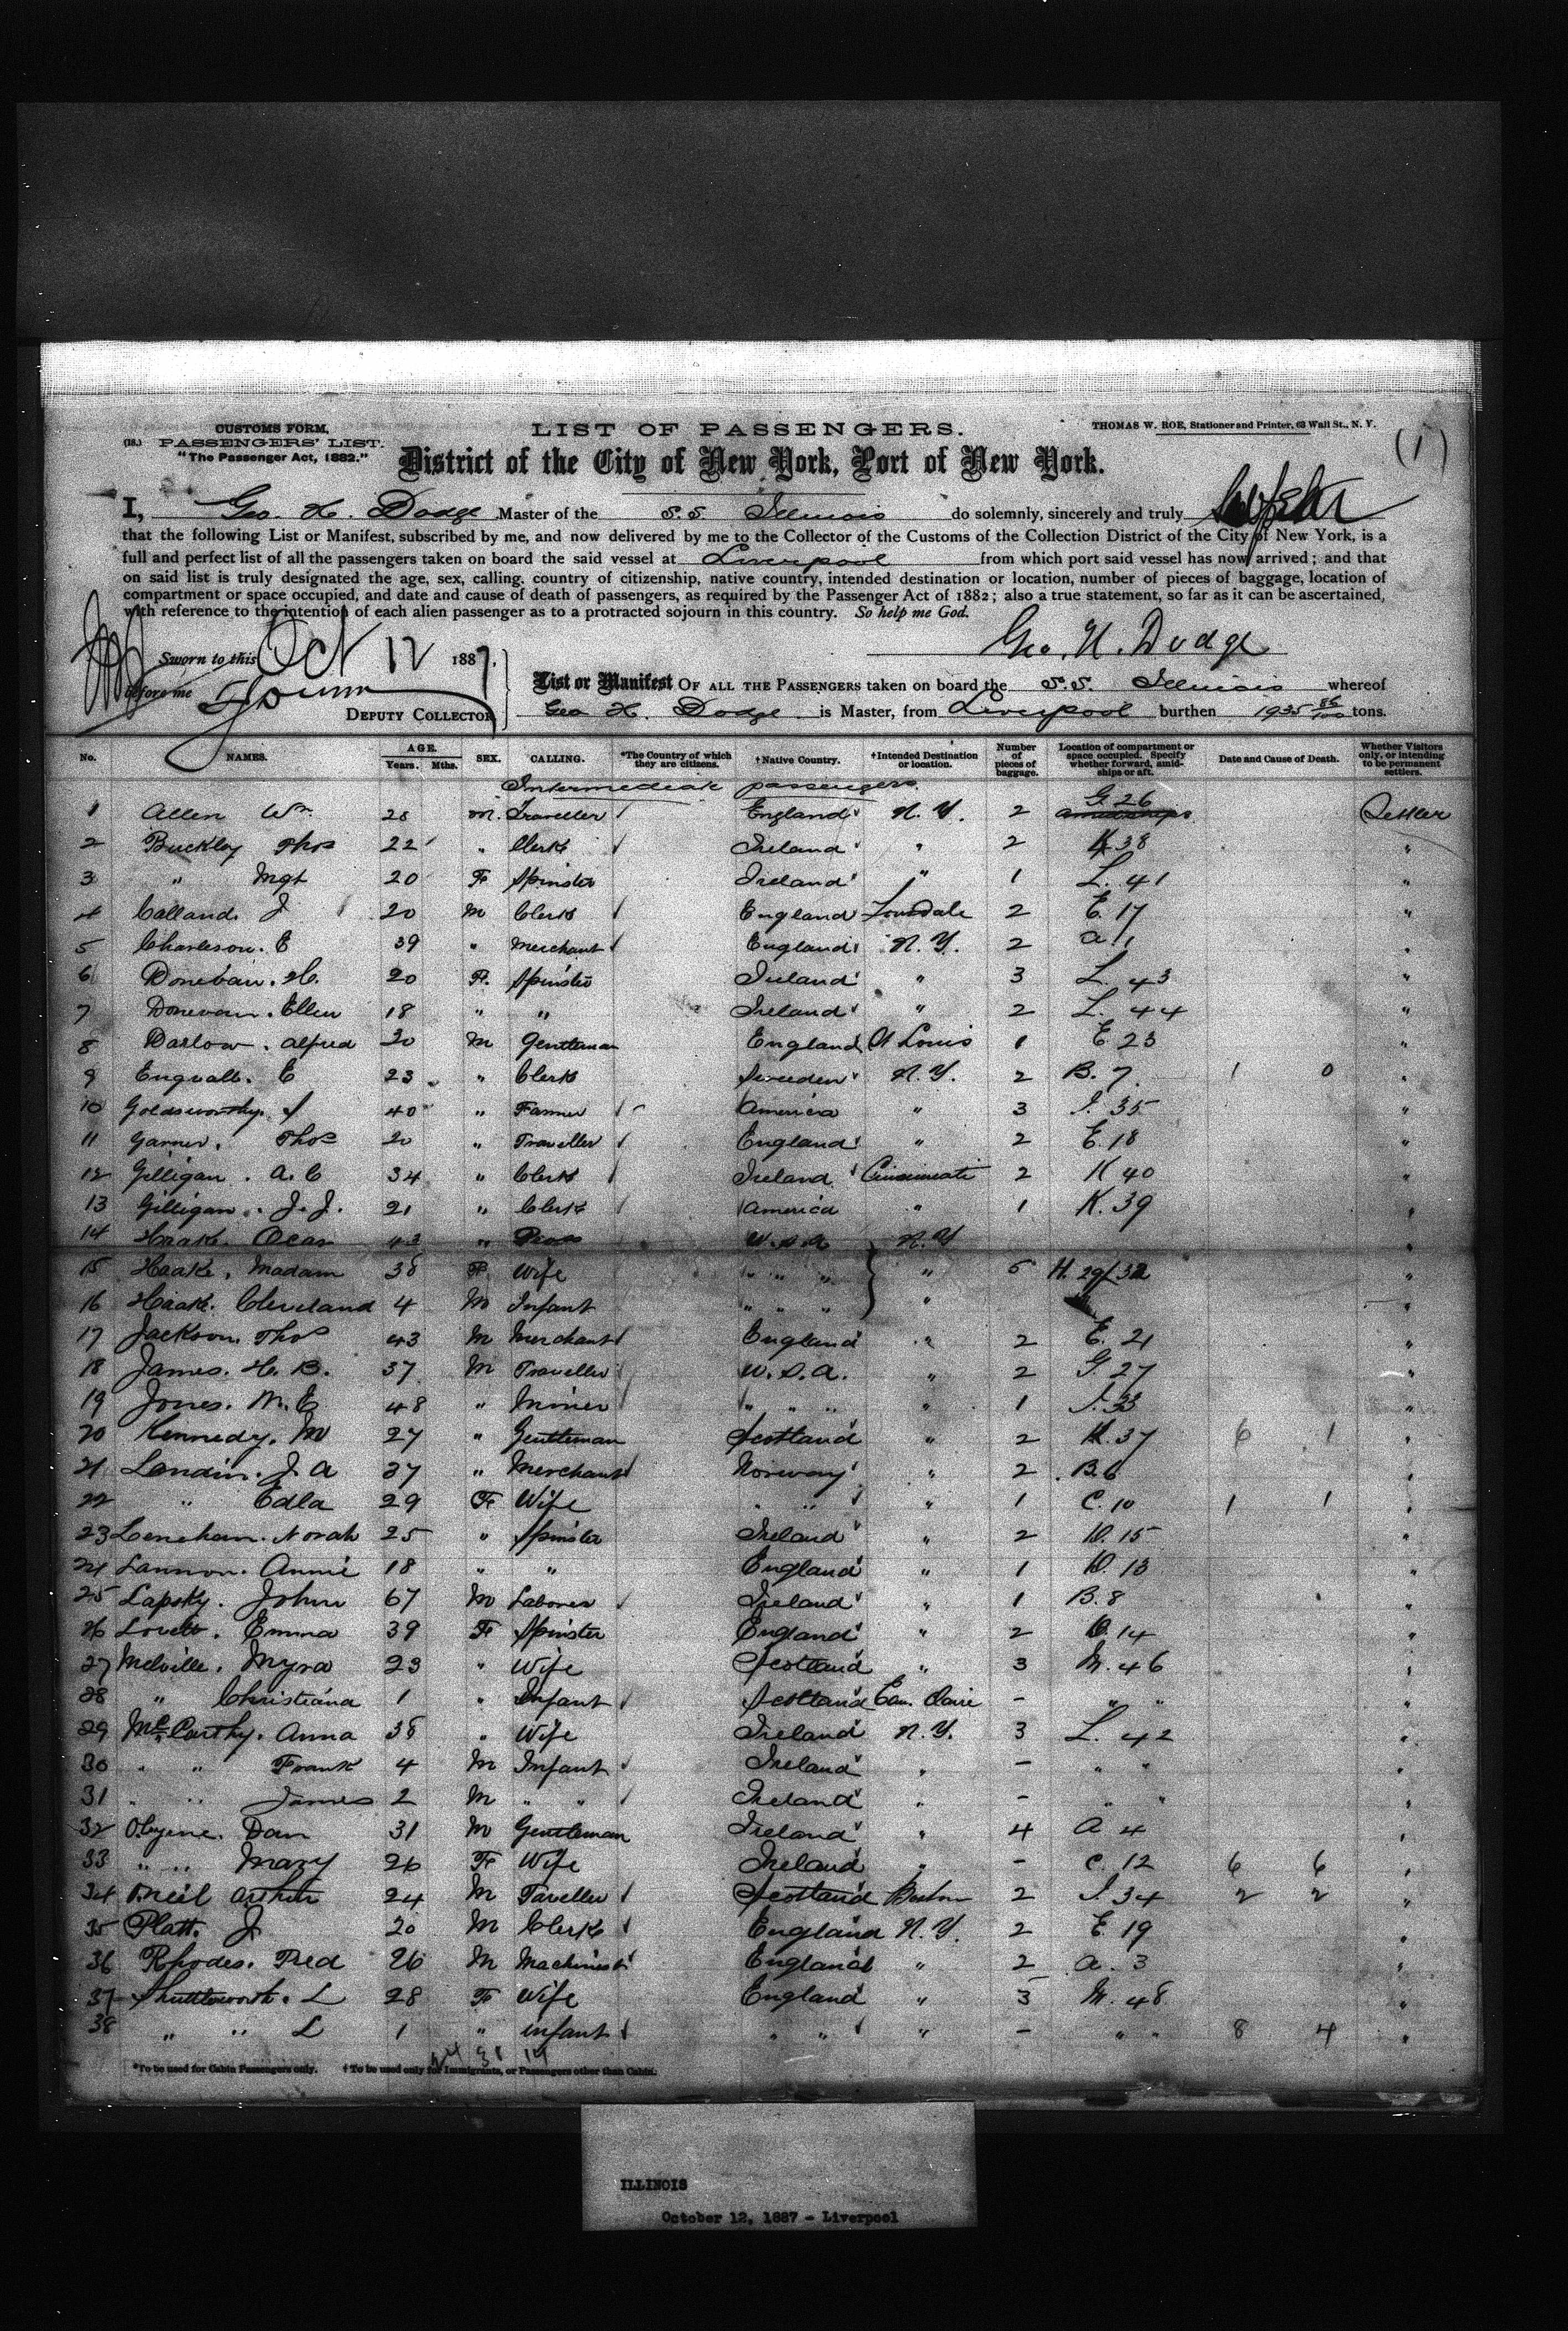 CUSTOMS FORM,
(18.) PASSENGERS' LIST.
"The Passenger Act, 1882."
LIST OF PASSENGERS.
THOMAS W. ROE, Stationer and Printer, 63 Wall St., N. Y.
(1)
District of the City of New York, Port of New York.
I, Geo. H. Dodge Master of the S.S. Illinois do solemnly, sincerely and truly
that the following List or Manifest, subscribed by me, and now delivered by me to the Collector of the Customs of the Collection District of the City of New York, is a
full and perfect list of all the passengers taken on board the said vessel at Liverpool from which port said vessel has now arrived; and that
on said list is truly designated the age, sex, calling. country of citizenship, native country, intended destination or location, number of pieces of baggage, location of
compartment or space occupied, and date and cause of death of passengers, as required by the Passenger Act of 1882; also a true statement, so far as it can be ascertained,
with reference to the intention of each alien passenger as to a protracted sojourn in this country. So help me God.
Geo. H. Dodge
Sworn to this Oct 12 1887.
before me
DEPUTY COLLECTOR
List or Manifest OF ALL THE PASSENGERS taken on board the S.S. Illinois whereof
Geo H. Dodge is Master, from Liverpool burthen 1935 86/100 tons.
No. NAMES. AGE. Years. Mths. SEX. CALLING. *The Country of which they are citizens. †Native Country. †Intended Destination or location. Number of pieces of baggage. Location of compartment or space occupied. Specify whether forward, amidships or aft. Date and Cause of Death. Whether Visitors only, or intending to be permanent settlers.
Intermediate passengers.
1 Allen Wm 28 M. Traveller England N. Y. 2 G. 26 amidships Settler
2 Buckley Thos 22 " Clerk Ireland " 2 K 38 "
3 " Mgt 20 F Spinster Ireland " 1 L. 41 "
4 Calland. J 20 M Clerk England 2 E. 17 "
5 Charleson. E 39 " Merchant England N. Y. 2 a. 1 "
6 Donevan. H. 20 F. Spinster Ireland " 3 L. 43 "
7 Donevan. Ellen 18 " " Ireland " 2 L. 44 "
8 Darlow. Alfred 20 M Gentleman England St Louis 1 E 23 "
9 Engvall. E 23 " Clerk Sweden N. Y. 2 B. 7. 1 0 "
10 Goldsworthy. J 40 " Farmer America " 3 J. 35 "
11 Garner. Thos 20 " Traveller England " 2 E. 18 "
12 Gilligan. A. C 34 " Clerk Ireland Cincinnati 2 K 40 "
13 Gilligan. J. J. 21 " Clerk America " 1 K. 39 "
14 Haake. Ocar 43 " U.S.A N. Y "
15 Haake, Madam 38 F. Wife " " " " 5 H. 29/32 "
16 Haake. Cleveland 4 M Infant " " " " "
17 Jackson. Thos 43 M Merchant England " 2 E. 21 "
18 James. H. B. 37 M Traveller U.S.A. " 2 G. 27 "
19 Jones. M. E 48 " Miner " " " " 1 J. 33 "
20 Kennedy. M 27 " Gentleman Scotland " 2 K. 37 6 1 "
21 Landin. J. A 37 " Merchant Norway " 2 B6 "
22 " Edla 29 F Wife " " " 1 C. 10 1 1 "
23 Lenehan. Norah 25 " Spinster Ireland " 2 D. 15 "
24 Lannon. Annie 18 " " England " 1 D. 13 "
25 Lapsky. John 67 M Laborer Ireland " 1 B. 8 "
26 Lovett. Emma 39 F Spinster England " 2 D. 14 "
27 Melville. Myra 23 " Wife Scotland " 3 M. 46 "
28 " Christiana 1 " Infant Scotland Eau Claire - " " "
29 McCarthy. Anna 38 " Wife Ireland N. Y. 3 L. 42 "
30 " " Frank 4 M Infant Ireland " - " " "
31 " " James 2 M " " Ireland " - " " "
32 Dan 31 M Gentleman Ireland " 4 A 4 "
33 " " Mary 26 F Wife Ireland " - C. 12 6 6 "
34 Oneil Arthur 24 M Taveller Scotland Boston 2 J. 34 2 2 "
35 Platt. J 20 M Clerk England N. Y. 2 E. 19 "
36 Rhodes. Fred 26 M Machinist England " 2 a. 3 "
37 Shuttleworth. L 28 F Wife England " 3 M. 48 "
38 " " L 1 " infant " " " - " " 8 4 "
*To be used for Cabin Passengers only. †To be used only for Immigrants, or Passengers other than Cabin.
ILLINOIS
October 12, 1887 - Liverpool